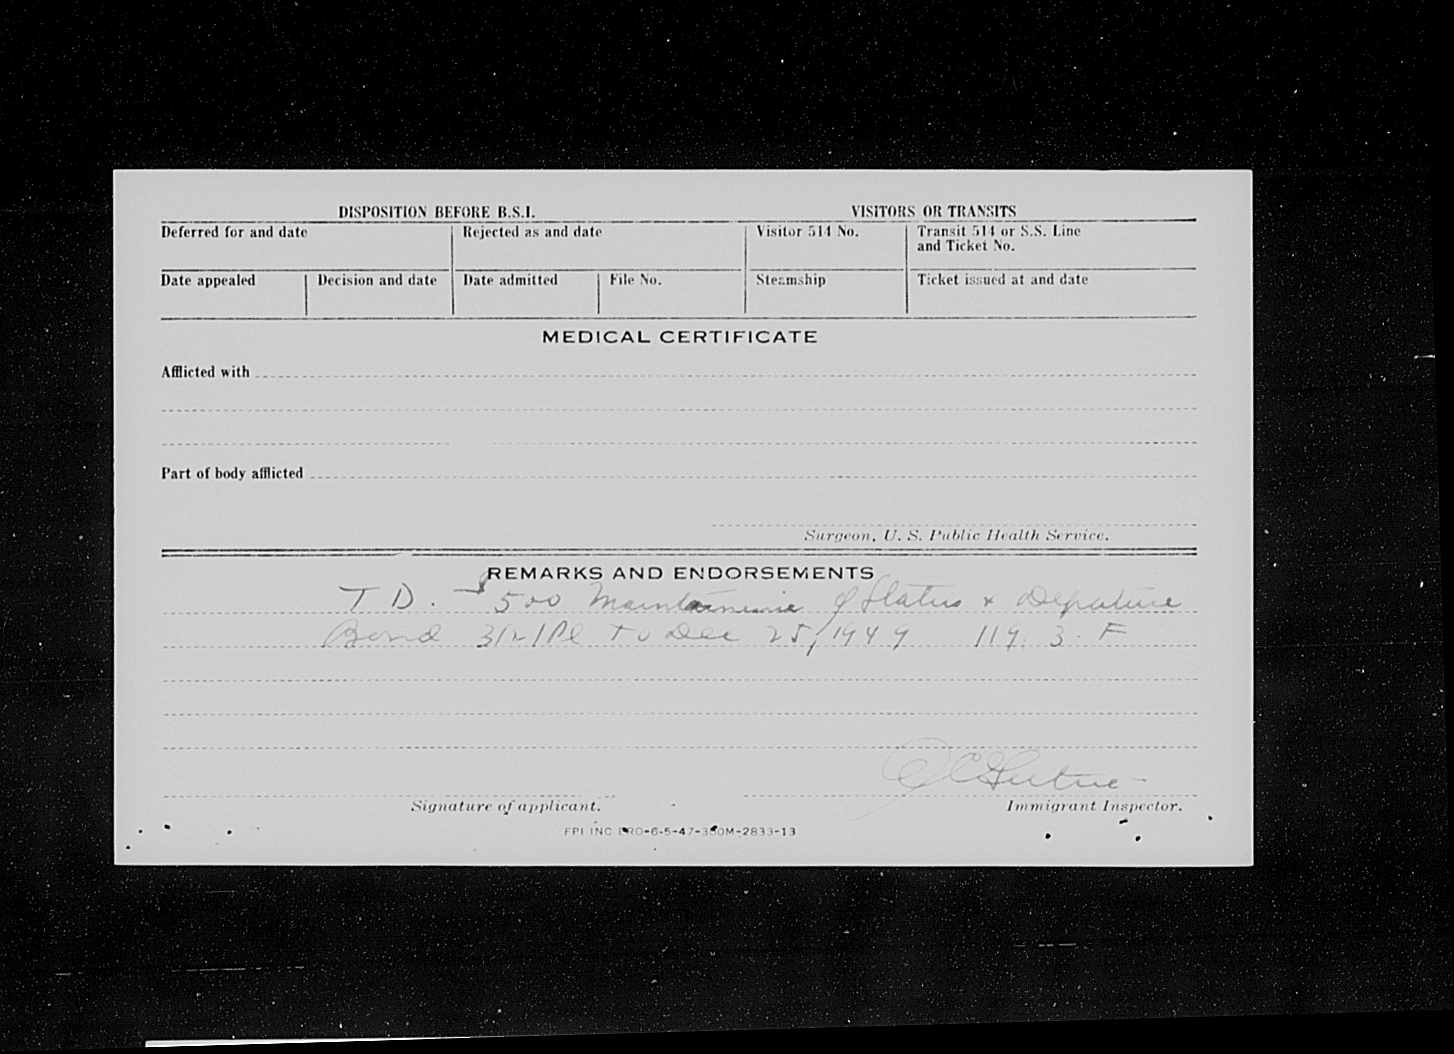 DISPOSITION BEFORE B.S.I. VISITORS OR TRANSITS
Deferred for and date Rejected as and date Visitor 514 No. Transit 514 or S.S. Line
and Ticket No.
Date appealed Decision and date Date admitted File No. Steamship Ticket issued at and date
MEDICAL CERTIFICATE
Afflicted with
Part of body afflicted
Surgeon, U. S. Public Health Service.
REMARKS AND ENDORSEMENTS
T D. - $500 Maintainence of Status & Departure
Bond to Dec 25, 1949 119. 3. F
Signature of applicant. Immigrant Inspector.
FPI INC ERO-6-5-47-350M-2833-13